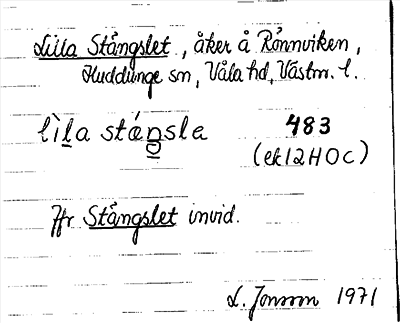 Lilla Stångslet, åker å Rönnviken,
Huddunge sn, Våla hd, Västm. l.
lìḷa stáŋsle 483
(ek 12H0c)
Jfr Stångslet invid.
L. Jonsson 1971